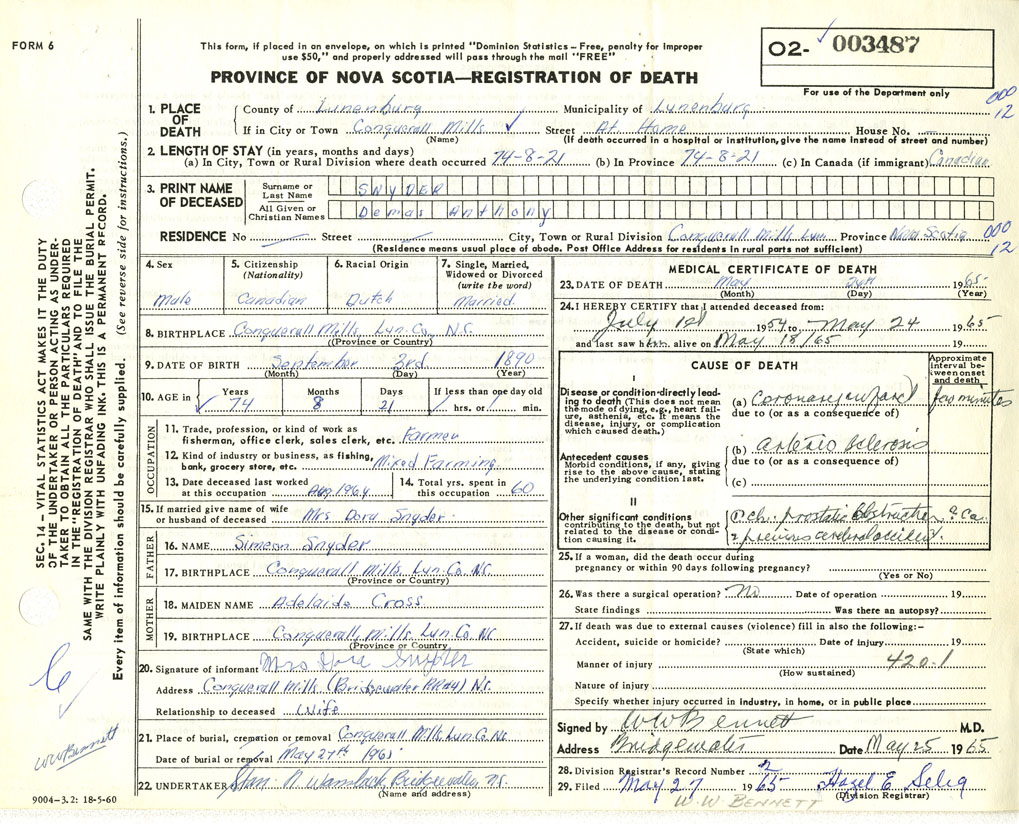 FORM 6
This form, if placed in an envelope, on which is printed "Dominion Statistics – Free, penalty for improper
use $50," and properly addressed will pass through the mail "FREE"
PROVINCE OF NOVA SCOTIA—REGISTRATION OF DEATH
O2- 003487
For use of the Department only
000
12
1. PLACE OF DEATH
County of Lunenburg Municipality of Lunenburg
If in City or Town Conquerall Mills Street At Home House No.
(Name) (If death occurred in a hospital or institution, give the name instead of street and number)
2. LENGTH OF STAY (in years, months and days)
(a) In City, Town or Rural Division where death occurred 74-8-21 (b) In Province 74-8-21 (c) In Canada (if immigrant) Canadian
3. PRINT NAME OF DECEASED
Surname or Last Name SNYDER
All Given or Christian Names Demas Anthony
RESIDENCE No Street City, Town or Rural Division Conquerall Mills Lun Province Nova Scotia
000
12
(Residence means usual place of abode. Post Office Address for residents in rural parts not sufficient)
4. Sex
Male
5. Citizenship
(Nationality)
Canadian
6. Racial Origin
Dutch
7. Single, Married,
Widowed or Divorced
(write the word)
Married.
8. BIRTHPLACE Conquerall Mills Lun. Co. N.S.
(Province or Country)
9. DATE OF BIRTH September 3rd 1890
(Month) (Day) (Year)
10. AGE in
Years 74
Months 8
Days 21
If less than one day old
hrs. or min.
OCCUPATION
11. Trade, profession, or kind of work as
fisherman, office clerk, sales clerk, etc. Farmer
12. Kind of industry or business, as fishing,
bank, grocery store, etc. Mixed Farming
13. Date deceased last worked
at this occupation Aug. 1964
14. Total yrs. spent in
this occupation 60
15. If married give name of wife
or husband of deceased Mrs Dora Snyder
FATHER
16. NAME Simeon Snyder
17. BIRTHPLACE Conquerall Mills Lun. Co. N.S.
(Province or Country)
MOTHER
18. MAIDEN NAME Adelaide Cross
19. BIRTHPLACE Conquerall Mills Lun. Co. N.S.
(Province or Country
20. Signature of informant Mrs Dora Snyder
Address Conquerall Mills (Bridgewater RR#4) N.S.
Relationship to deceased Wife
21. Place of burial, cremation or removal Conquerall Mills Lun. Co. N.S.
Date of burial or removal May 27th 1965
22. UNDERTAKER Bridgewater, N.S.
(Name and address)
MEDICAL CERTIFICATE OF DEATH
23. DATE OF DEATH May 24th 1965
(Month) (Day) (Year)
24. I HEREBY CERTIFY that I attended deceased from:
July 1st 1954 to May 24 1965
and last saw him alive on May 18/65 19
CAUSE OF DEATH
Approximate
Interval between
onset
and death
I
Disease or condition directly leading
to death (This does not mean
the mode of dying, e.g., heart failure,
asthenia, etc. It means the
disease, injury, or complication
which caused death.)
(a) Coronary infarct few minutes
due to (or as a consequence of)
Antecedent causes
Morbid conditions, if any, giving
rise to the above cause, stating
the underlying condition last.
(b) arterio sclerosis
due to (or as a consequence of)
(c)
II
Other significant conditions
contributing to the death, but not
related to the disease or condition
causing it.
1 ch. prostatic obstruction ? Ca.
2 previous cerebral accident.
25. If a woman, did the death occur during
pregnancy or within 90 days following pregnancy?
(Yes or No)
26. Was there a surgical operation? No Date of operation 19
State findings Was there an autopsy?
27. If death was due to external causes (violence) fill in also the following:–
Accident, suicide or homicide? Date of injury 19
(State which)
Manner of injury 420.1
(How sustained)
Nature of injury
Specify whether injury occurred in industry, in home, or in public place
Signed by W W Bennett M.D.
Address Bridgewater Date May 25 1965
28. Division Registrar's Record Number 2
29. Filed May 27 1965 Hazel E Selig
(Division Registrar)
W. W. BENNETT
SEC. 14 – VITAL STATISTICS ACT MAKES IT THE DUTY
OF THE UNDERTAKER OR PERSON ACTING AS UNDERTAKER
TO OBTAIN ALL THE PARTICULARS REQUIRED
IN THE "REGISTRATION OF DEATH" AND TO FILE THE
SAME WITH THE DIVISION REGISTRAR WHO SHALL ISSUE THE BURIAL PERMIT.
WRITE PLAINLY WITH UNFADING INK. THIS IS A PERMANENT RECORD.
Every item of information should be carefully supplied. (See reverse side for instructions.)
WW Bennett
9004–3.2: 18-5-60